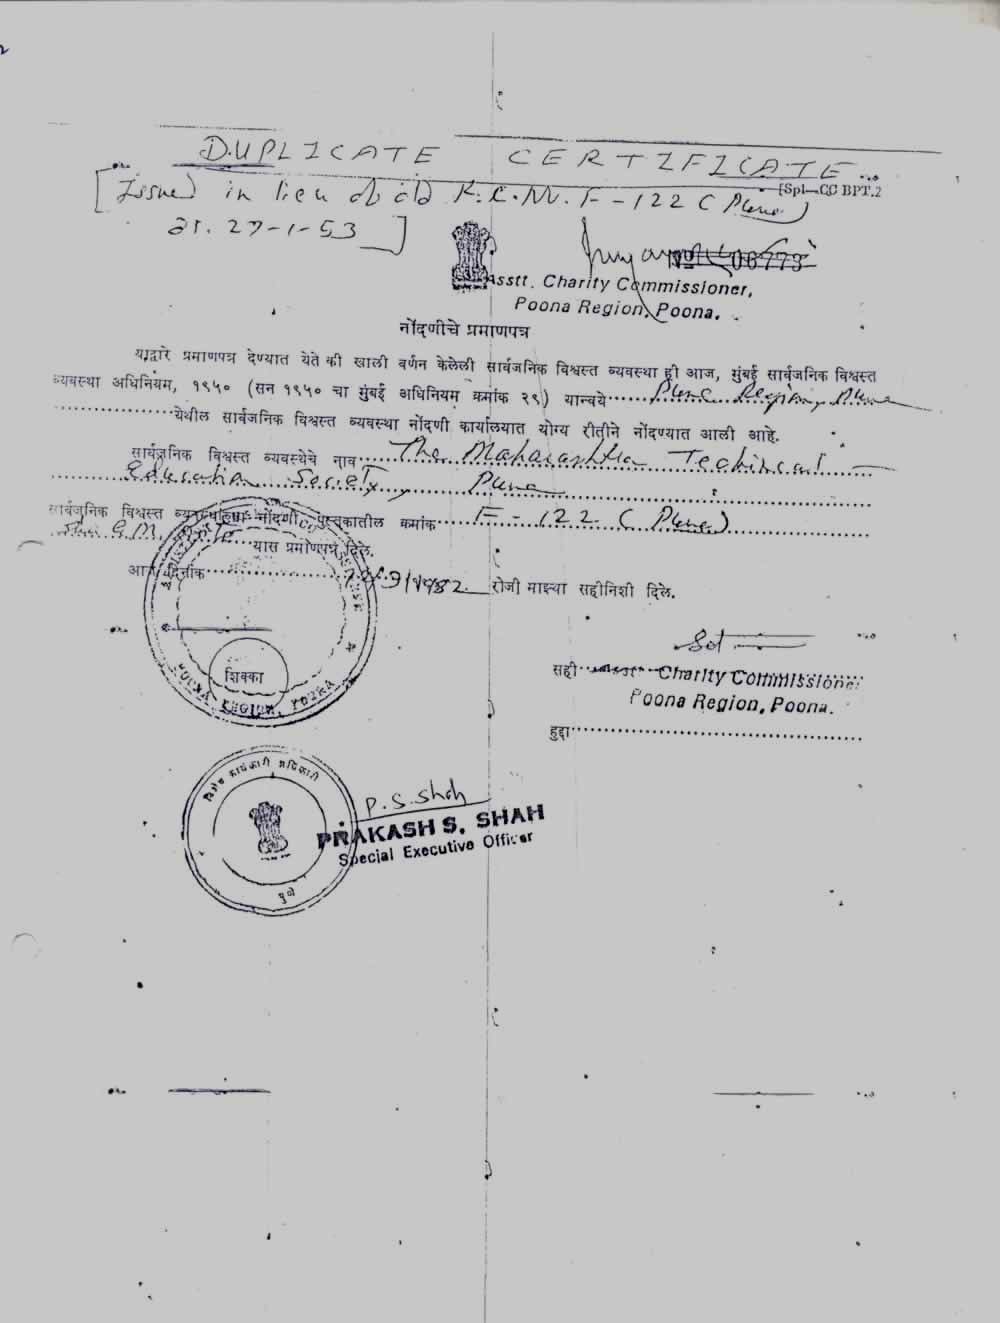 DUPLICATE CERTIFICATE
[Spl.—CC BPT.2
[Issued in lieu of old R.C. No. F-122 (Pune)
dt. 27-1-53]
No 06773
Asstt. Charity Commissioner,
Poona Region, Poona.
नोंदणीचे प्रमाणपत्र
याद्वारे प्रमाणपत्र देण्यात येते की खाली वर्णन केलेली सार्वजनिक विश्वस्त व्यवस्था ही आज, मुंबई सार्वजनिक विश्वस्त
व्यवस्था अधिनियम, १९५० (सन १९५० चा मुंबई अधिनियम क्रमांक २९) यान्वये Pune Region, Pune
येथील सार्वजनिक विश्वस्त व्यवस्था नोंदणी कार्यालयात योग्य रीतीने नोंदण्यात आली आहे.
सार्वजनिक विश्वस्त व्यवस्थेचे नाव The Maharashtra Technical
Education Society, Pune
सार्वजनिक विश्वस्त व्यवस्थांच्या नोंदणी पुस्तकातील क्रमांक F-122 (Pune)
यास प्रमाणपत्र दिले.
आज दिनांक /9/1982 रोजी माझ्या सहीनिशी दिले.
Sd
सही Asstt. Charity Commissioner
Poona Region, Poona.
हुद्दा
शिक्का
POONA REGION, POONA
विशेष कार्यकारी अधिकारी
पुणे
P. S. Shah
PRAKASH S. SHAH
Special Executive Officer